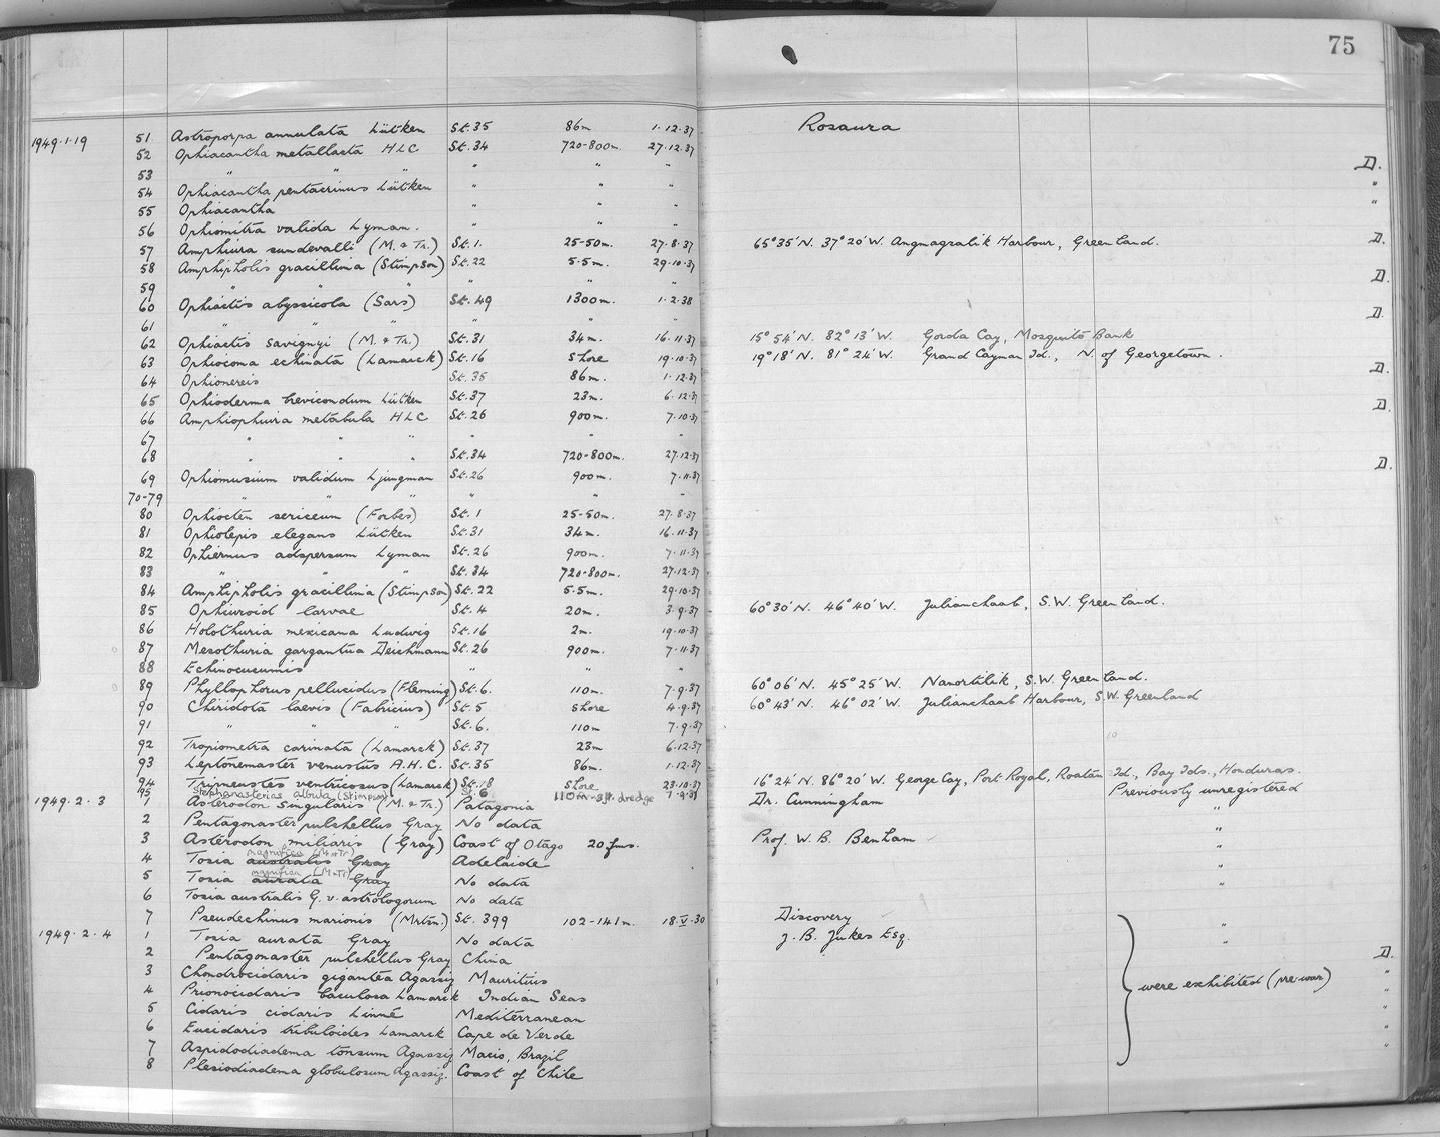 75
1949.1.19 51 Astroporpa annulata Lütken St.35 86m 1.12.37 Rosaura
52 Ophiacantha metallacta HLC St.34 720-800m. 27.12.37
53 " " " " " " D.
54 Ophiacantha pentacrinus Lütken " " " "
55 Ophiacantha " " " "
56 Ophiomitra valida Lyman. " " "
57 Amphiura sundevalli (M. & Tr.) St.1. 25-50m. 27.8.37 65°35'N. 37°20'W. Angmagsalik Harbour, Greenland. D.
58 Amphipholis gracillima (Stimpson) St.22 5.5m. 29.10.37
59 " " " " " " D.
60 Ophiactis abyssicola (Sars) St.49 1300m. 1.2.38
61 " " " " " " D.
62 Ophiactis savignyi (M. & Tr.) St.31 34m. 16.11.37 15°54'N. 82°13'W. Gorda Cay, Mosquito Bank
63 Ophiocoma echinata (Lamarck) St.16 Shore 19.10.37 19°18'N. 81°24'W. Grand Cayman Id., N. of Georgetown.
64 Ophionereis St.35 86m. 1.12.37 D.
65 Ophioderma brevicaudum Lütken St.37 23m. 6.12.37
66 Amphiophiura metabula HLC St.26 900m. 7.10.37 D.
67 " " " " " "
68 " " " St.34 720-800m. 27.12.37
69 Ophiomusium validum Ljungman St.26 900m. 7.11.37 D.
70-79 " " " " " "
80 Ophiocten sericeum (Forbes) St.1 25-50m. 27.8.37
81 Ophiolepis elegans Lütken St.31 34m. 16.11.37
82 Ophiernus adspersum Lyman St.26 900m. 7.11.37
83 " " " St.34 720-800m. 27.12.37
84 Amphipholis gracillima (Stimpson) St.22 5.5m. 29.10.37
85 Ophiuroid larvae St.4 20m. 3.9.37 60°30'N. 46°40'W. Julianehaab, S.W. Greenland.
86 Holothuria mexicana Ludwig St.16 2m. 19.10.37
87 Mesothuria gargantua Deichmann St.26 900m. 7.11.37
88 Echinocucumis " " "
89 Phyllophorus pellucidus (Fleming) St.6. 110m. 7.9.37 60°06'N. 45°25'W. Nanortalik, S.W. Greenland.
90 Chiridota laevis (Fabricius) St.5 Shore 4.9.37 60°43'N. 46°02'W. Julianehaab Harbour, S.W. Greenland
91 " " " St.6. 110m 7.9.37
92 Tropiometra carinata (Lamarck) St.37 23m 6.12.37
93 Leptonemaster venustus A.H.C. St.35 86m. 1.12.37
94 Tripneustes ventricosus (Lamarck) St.18 Shore 23.10.37 16°24'N. 86°20'W. George Cay, Port Royal, Roatán Id., Bay Ids., Honduras.
95 Stephanasterias albula (Stimpson) St.6 110m-3ft. dredge 7.9.37
1949.2.3 1 Asterodon singularis (M. & Tr.) Patagonia Dr. Cunningham Previously unregistered
2 Pentagonaster pulchellus Gray No data "
3 Asterodon miliaris (Gray) Coast of Otago 20 fms. Prof. W. B. Benham "
magnifica (M&Tr)
4 Tosia australis Gray Adelaide "
magnifica (M&Tr)
5 Tosia aurata Gray No data "
6 Tosia australis G. v. astrologorum No data
7 Pseudechinus marionis (Mrtsn.) St. 399 102-141m. 18.V.30 Discovery "
1949.2.4 1 Tosia aurata Gray No data J. B. Jukes Esq. "
2 Pentagonaster pulchellus Gray China D.
3 Chondrocidaris gigantea Agassiz Mauritius "
4 Prionocidaris baculosa Lamarck Indian Seas were exhibited (pre-war) "
5 Cidaris cidaris Linné Mediterranean "
6 Eucidaris tribuloides Lamarck Cape de Verde "
7 Aspidodiadema tonsum Agassiz Macio, Brazil "
8 Plesiodiadema globulosum Agassiz. Coast of Chile